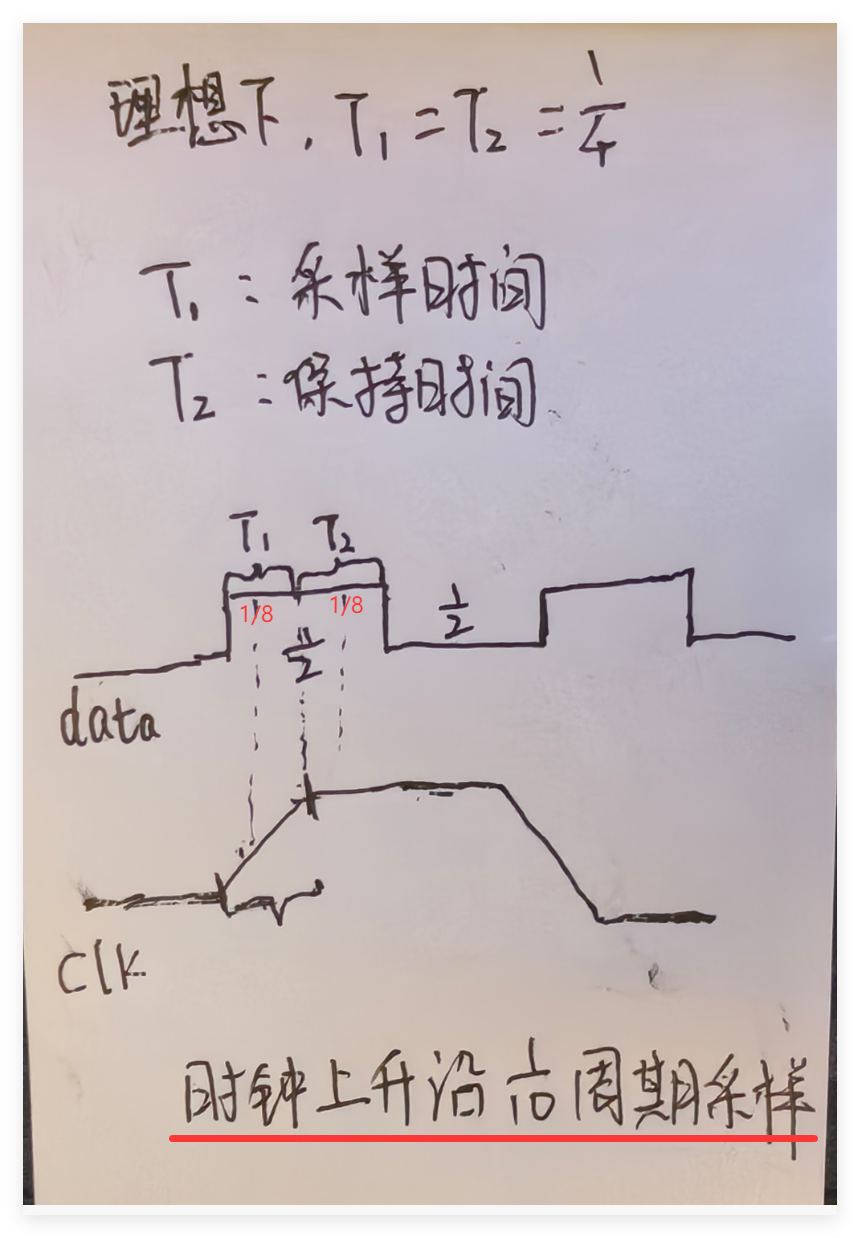 理想下, T₁ = T₂ = 1/4
T₁ : 采样时间
T₂ : 保持时间
T₁ T₂
1/8 1/8 1/2
1/2
data
clk
时钟上升沿 1/10 周期采样